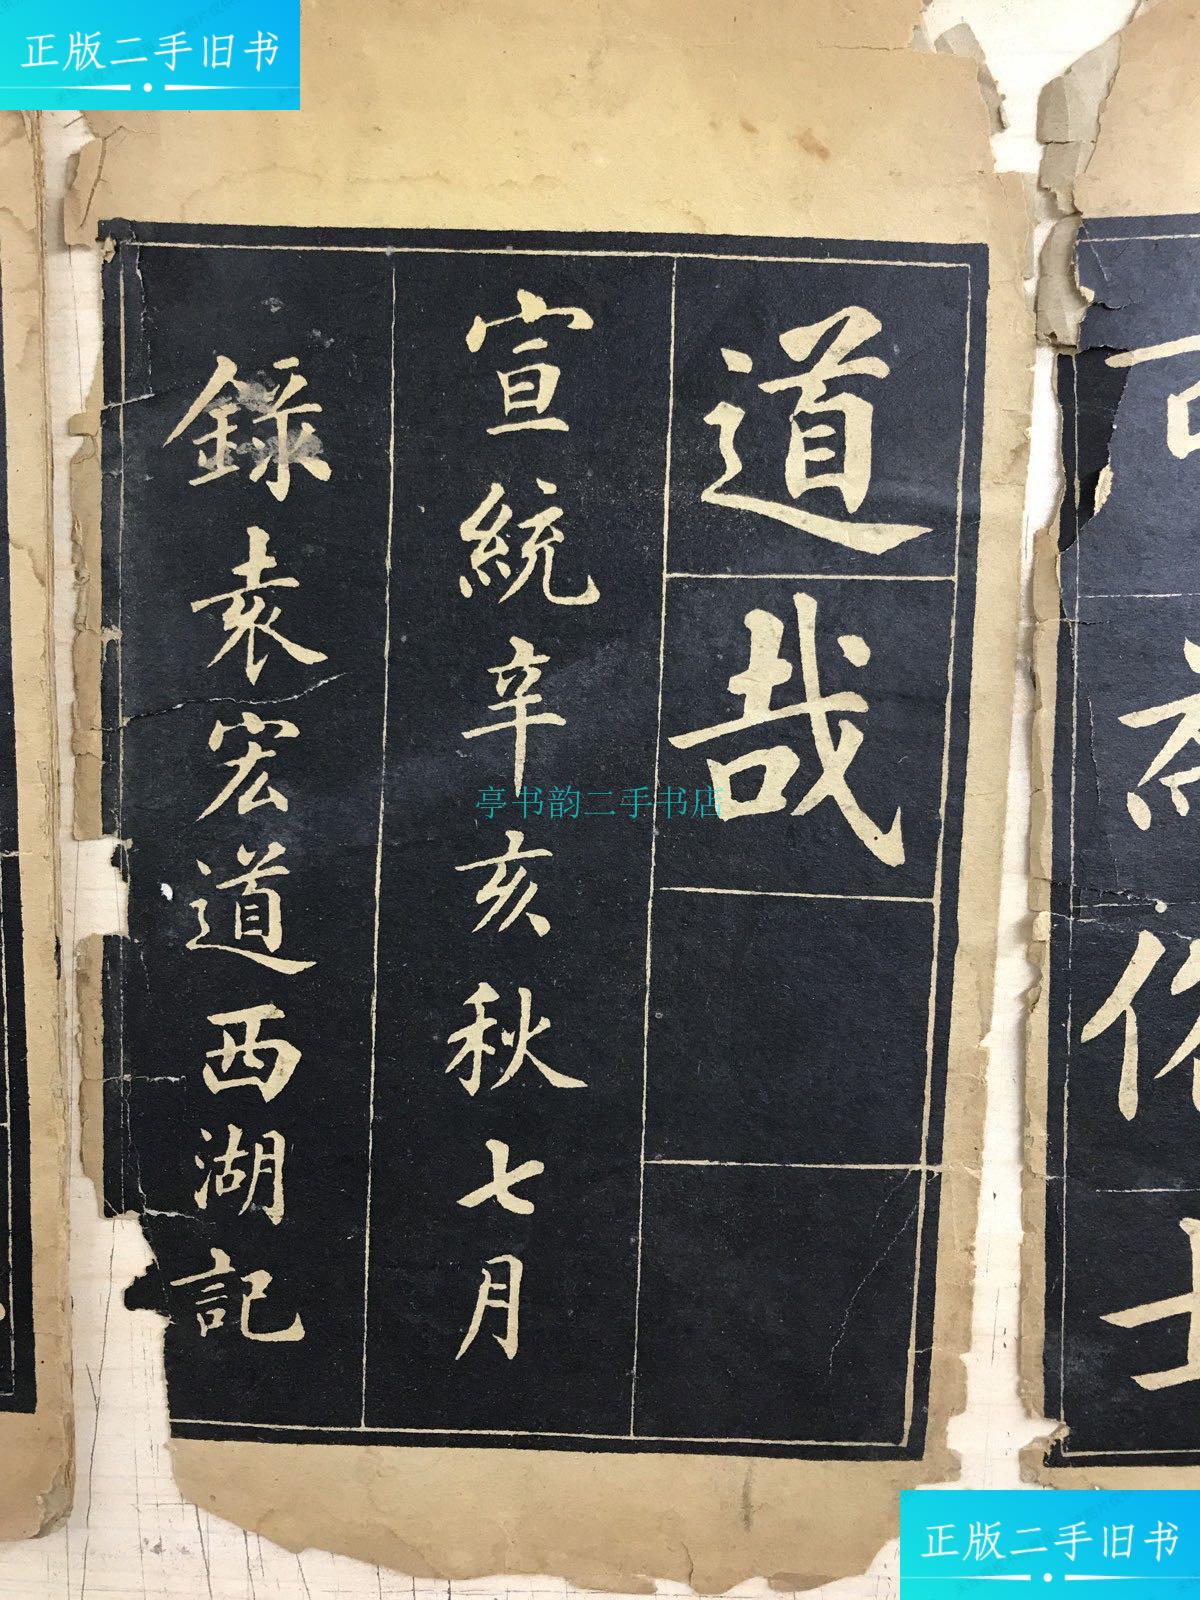 正版二手旧书
道哉
宣統辛亥秋七月
錄袁宏道西湖記
亭书韵二手书店
正版二手旧书